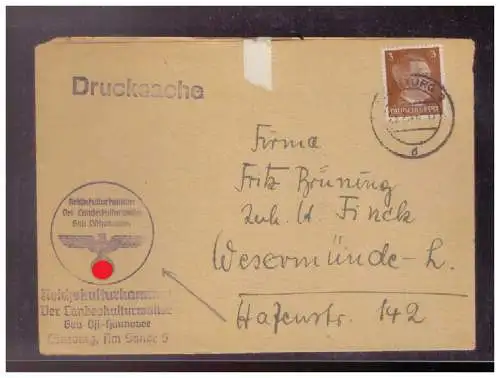 Drucksache
3 3
DEUTSCHES REICH
d
Firma
Fritz Brünning
Inh. H. Finck
Wesermünde-L.
Hafenstr. 142
Reichskulturkammer
Der Landeskulturwalter
Gau Osthannover
Reichskulturkammer
Der Landeskulturwalter
Gau Ost-Hannover
Lüneburg, Am Sande 5